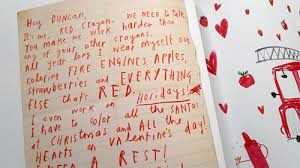 Hey DUNCAN,
It's me, RED Crayon. WE NEED to Talk.
You make me work harder than
any of your other crayons.
All year long I wear myself out
coloring FIRE ENGINES, Apples,
Strawberries and EVERYTHING
ELSE that's RED.
I even work on Holidays!
I have to color all the SANTAS
at CHRISTMAS and ALL the
HEARTS on VALENTINE'S day!
A REST!